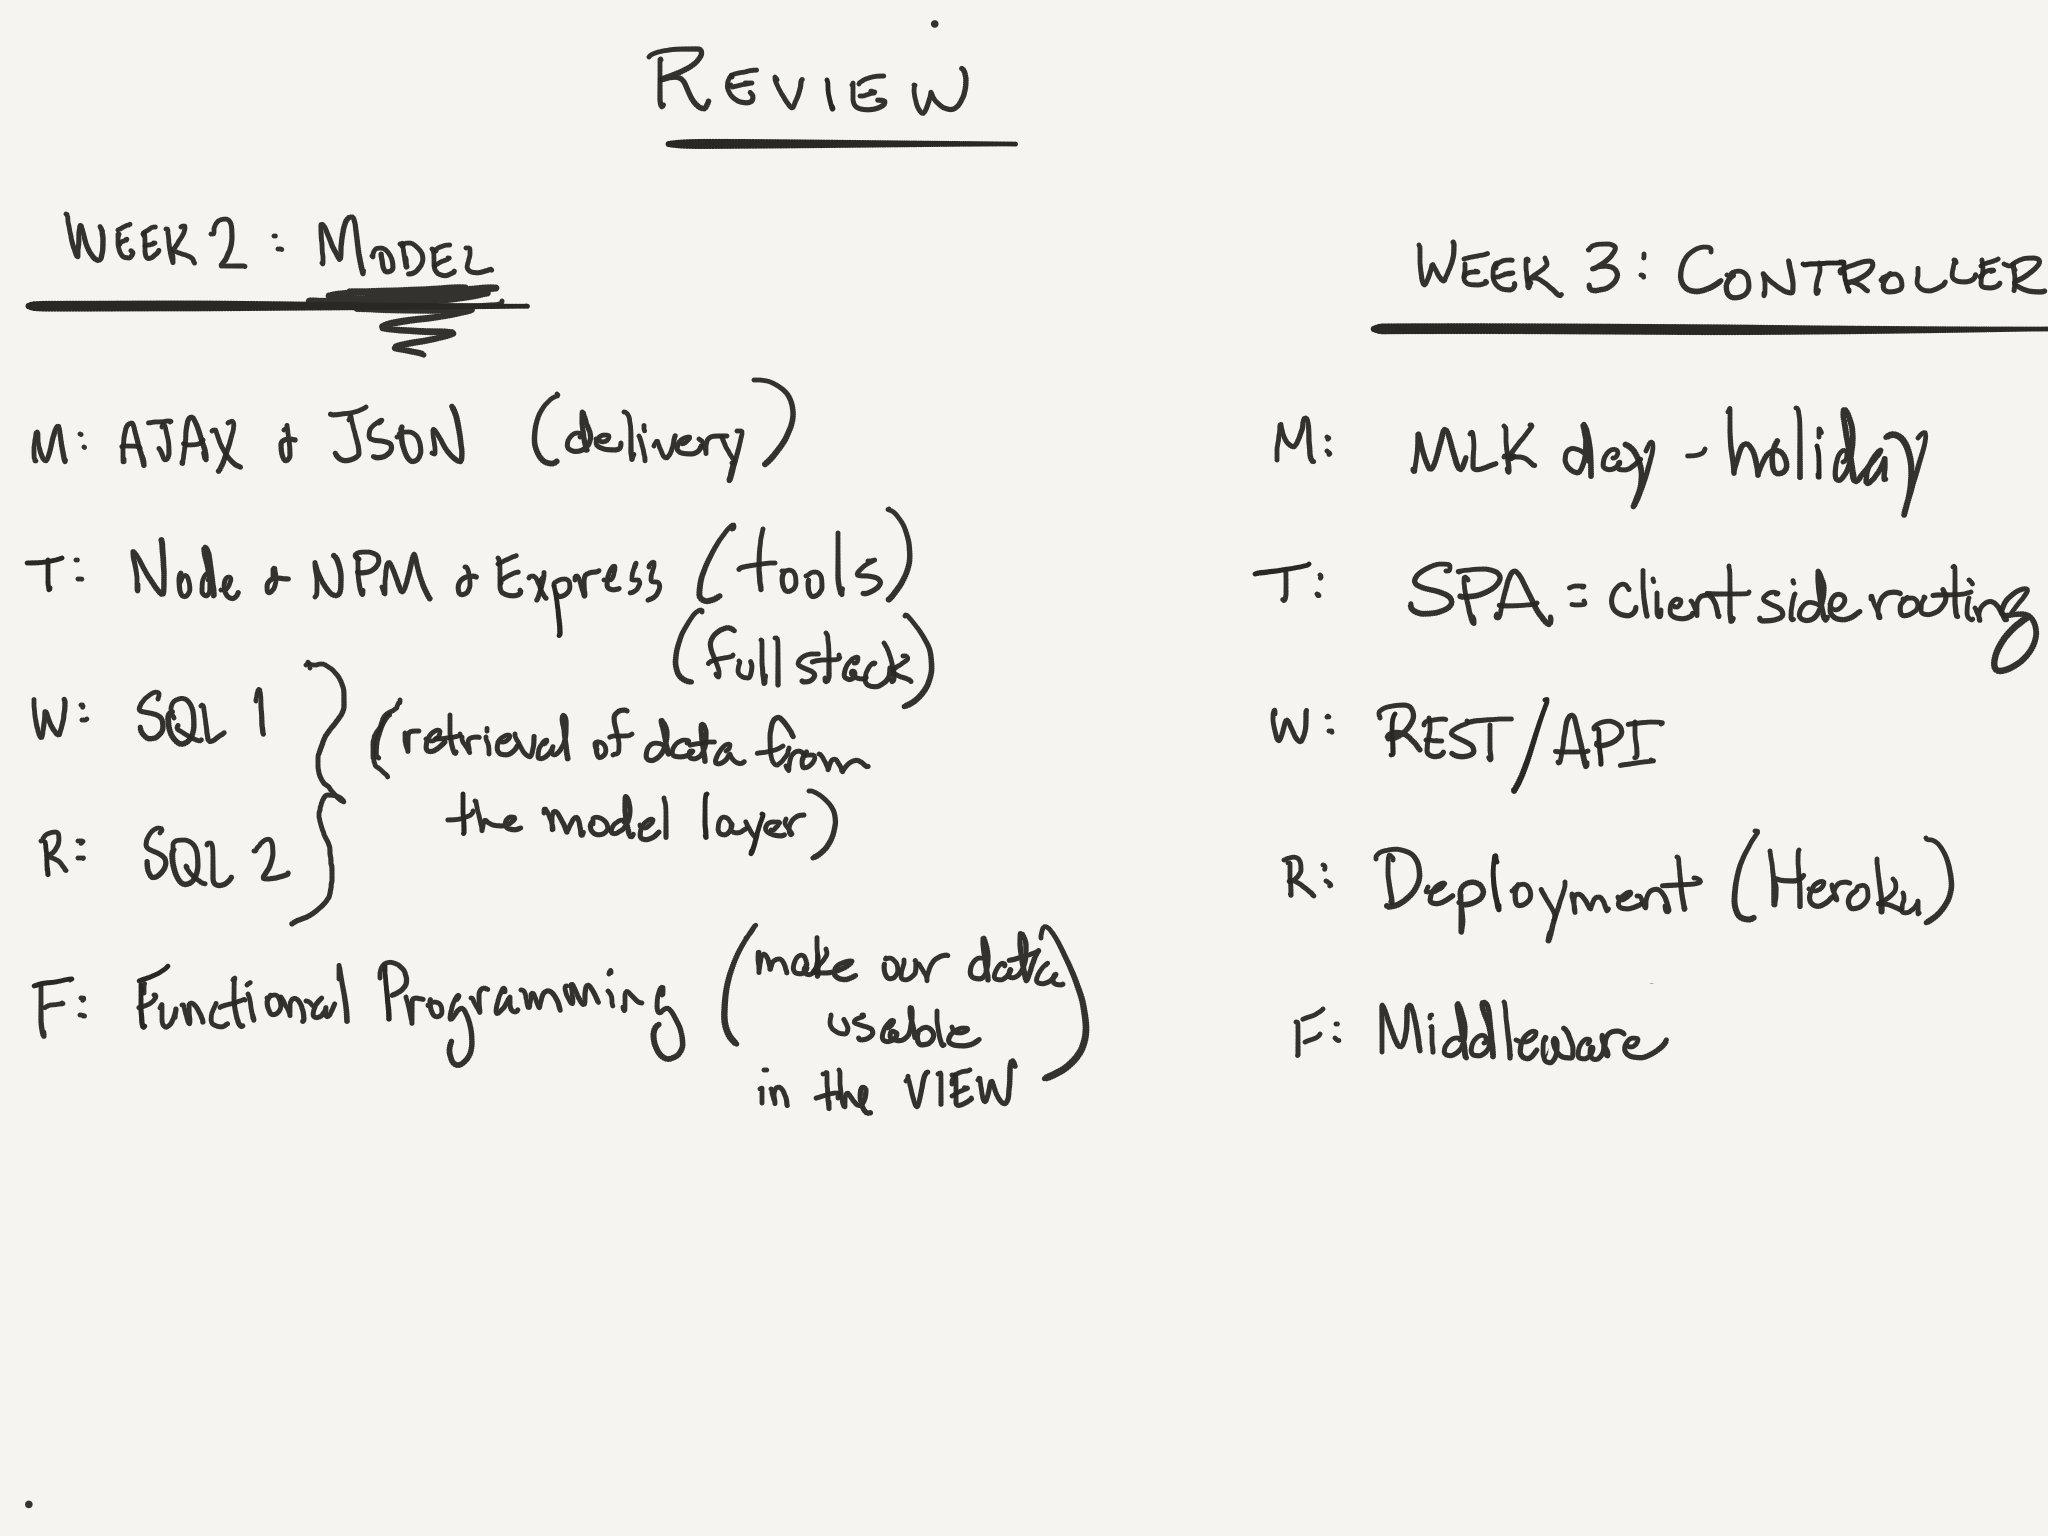 REVIEW
WEEK 2 : MODEL
M: AJAX & JSON (delivery)
T: Node & NPM & Express (tools)
(full stack)
W: SQL 1
(retrieval of data from
the model layer)
R: SQL 2
F: Functional Programming (make our data
usable
in the VIEW)
WEEK 3: CONTROLLER
M: MLK day - holiday
T: SPA = client side routing
W: REST/API
R: Deployment (Heroku)
F: Middleware